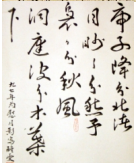 帝子降兮北渚
目眇々兮愁予
袅々兮秋風
洞庭波兮木葉
下